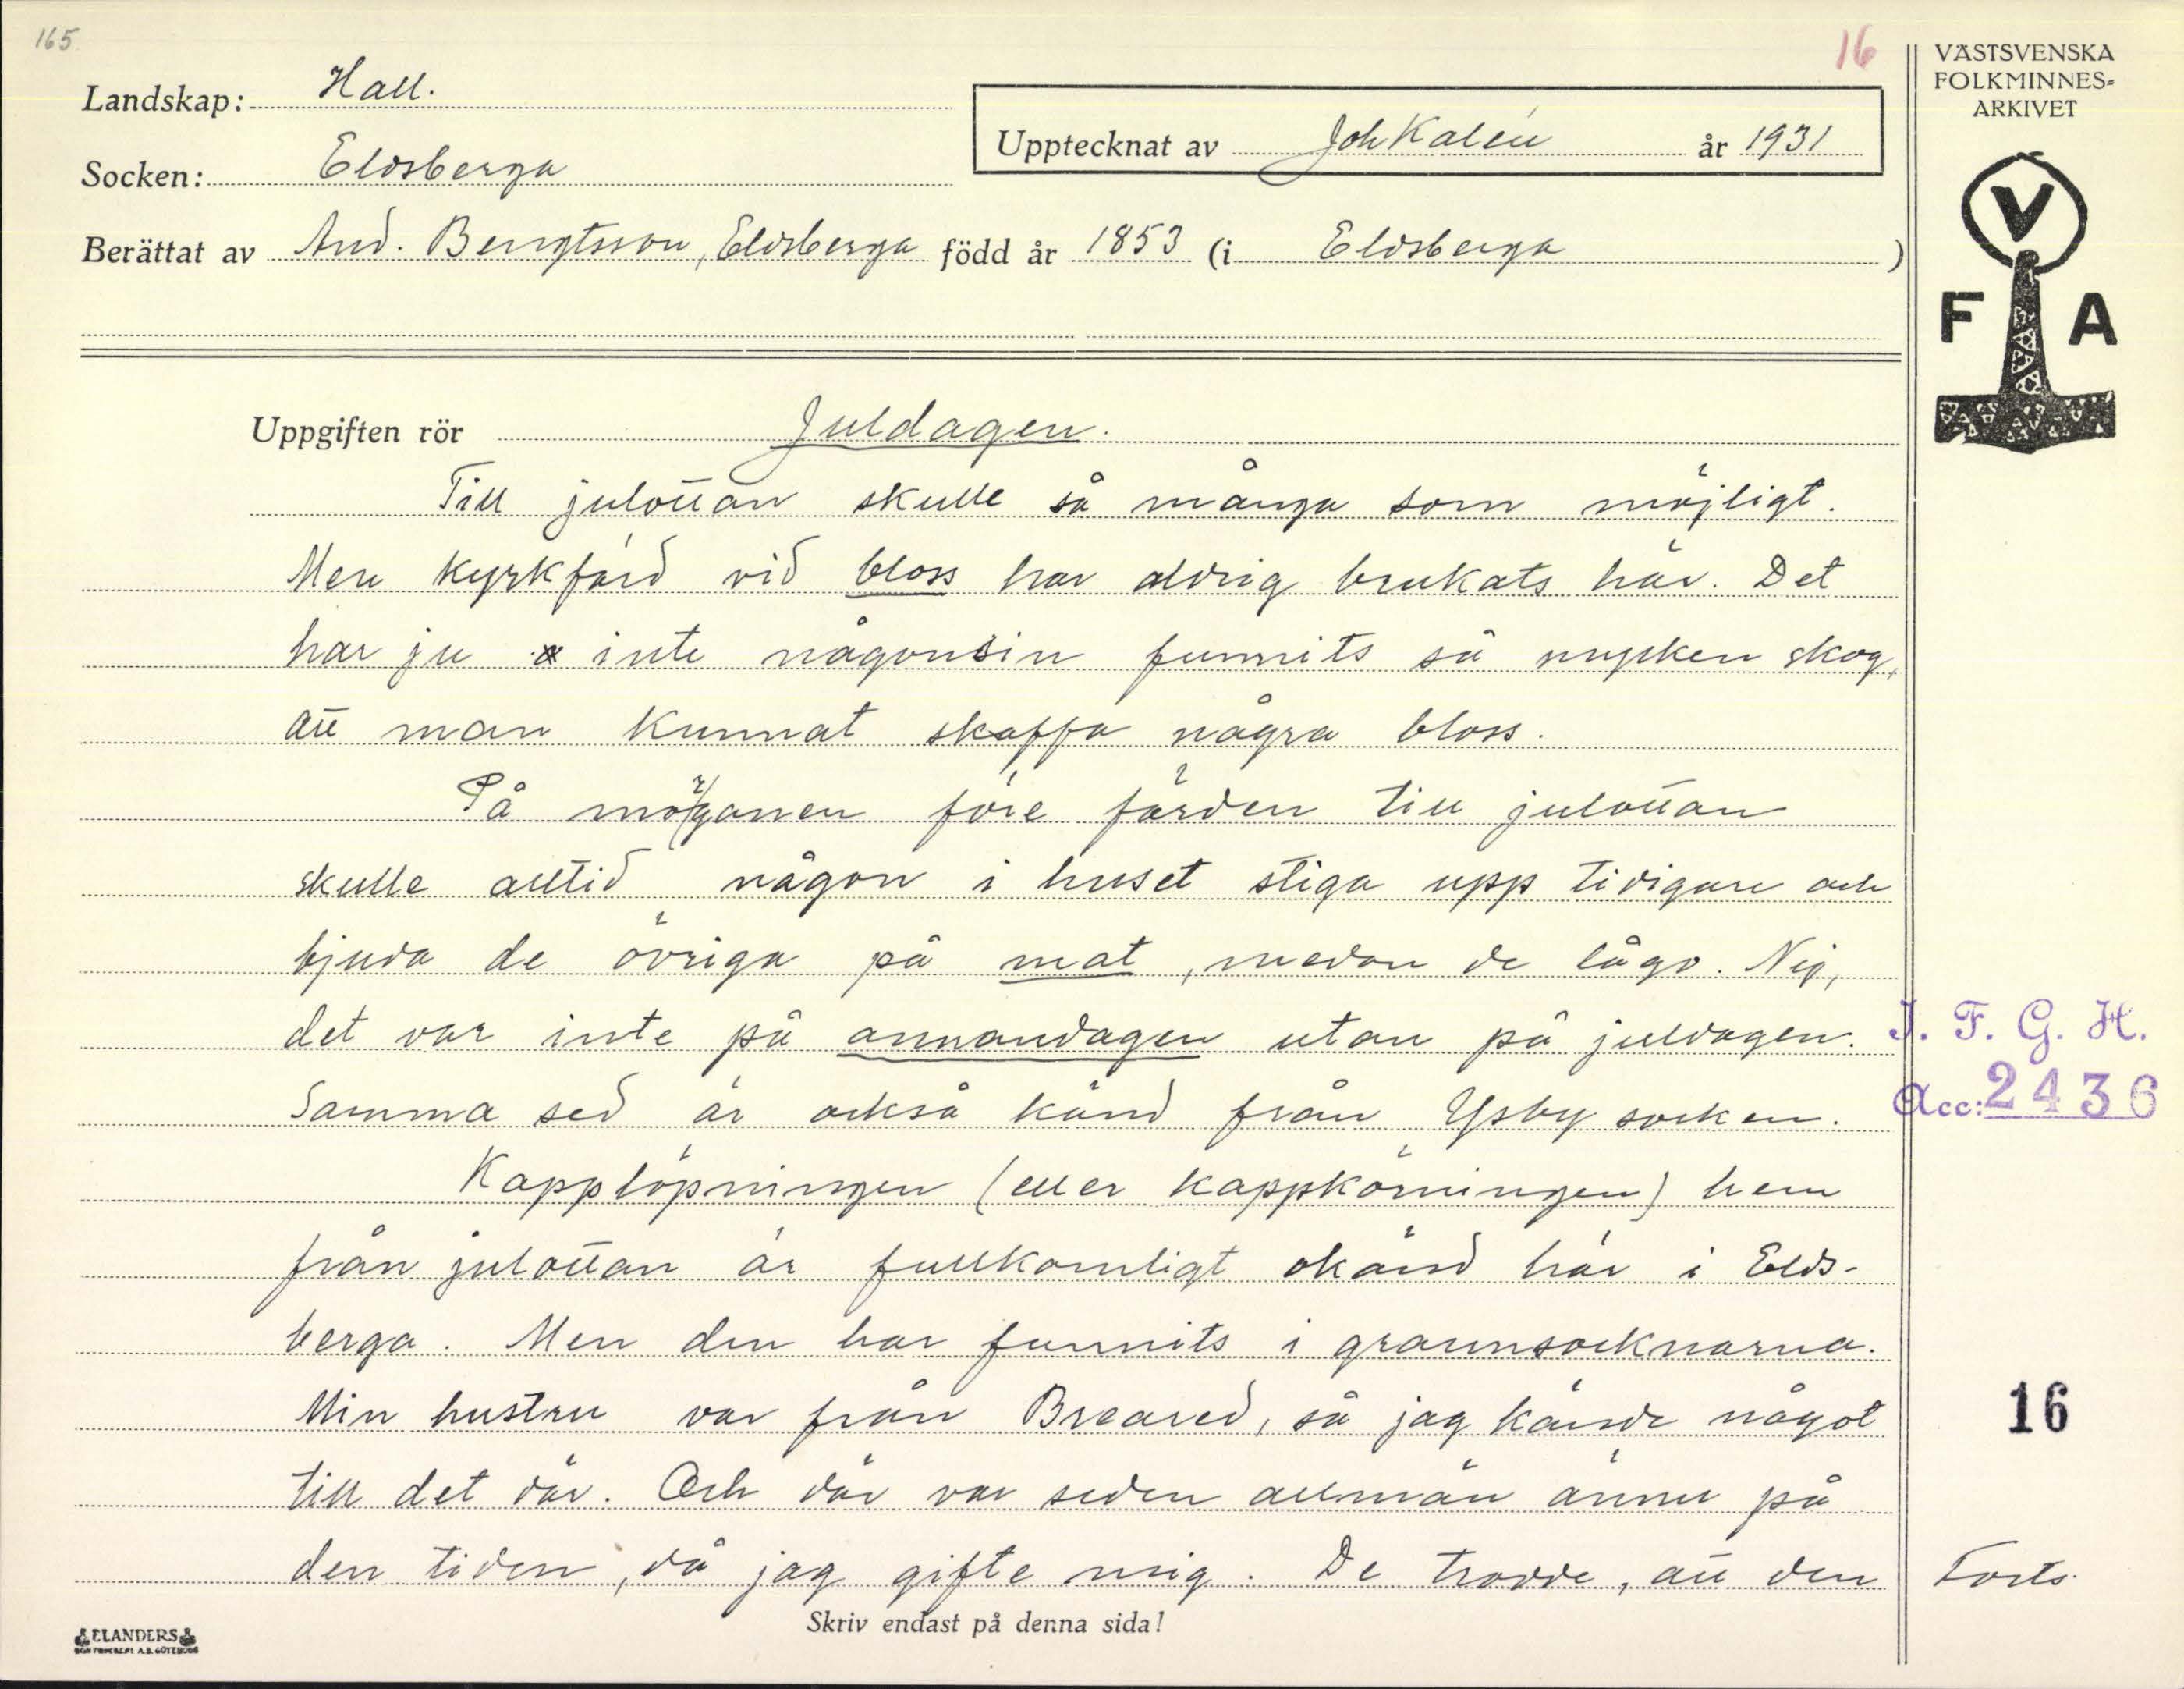 165
16
VÄSTSVENSKA
FOLKMINNES-
ARKIVET
Landskap: Hall.
Upptecknat av Joh Kalén år 1931
Socken: Eldsberga
Berättat av And. Bengtsson, Eldsberga född år 1853 (i Eldsberga )
V
F A
Uppgiften rör Juldagen.
Till julottan skulle så många som möjligt.
Men kyrkfärd vid bloss har aldrig brukats här. Det
har ju inte någonsin funnits så mycken skog,
att man kunnat skaffa några bloss.
På morganen före färden till julottan
skulle alltid någon i huset stiga upp tidigare och
bjuda de övriga på mat, medan de lågo. Nej,
det var inte på annandagen utan på juldagen.
J. F. G. H.
Samma sed är också känd från Ysby socken.
Acc: 2436
Kapplöpningen (eller kappkörningen) hem
från julottan är fullkomligt okänd här i Elds-
berga. Men den har funnits i grannsocknarna.
Min hustru var från Breared, så jag kände något
16
till det där. Och där var seden allmän ännu på
den tiden, då jag gifte mig. De trodde, att den
Forts.
Skriv endast på denna sida!
ELANDERS